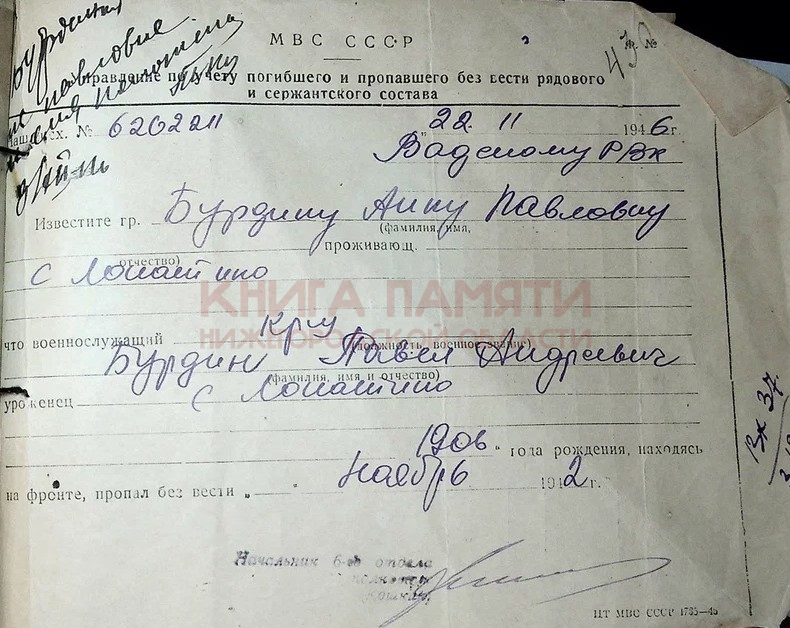 МВС СССР
Управление по учету погибшего и пропавшего без вести рядового
и сержантского состава
Бурдина
Павловне
Наш исх. № 6202211
„22. 11 1946 г.
Вадскому РВК
Известите гр. Бурдину Анну Павловну
(фамилия, имя,
отчество)
проживающ.
с Лопатино
КНИГА ПАМЯТИ
НИЖЕГОРОДСКОЙ ОБЛАСТИ
что военнослужащий кр-ц
(должность, военное звание)
Бурдин Павел Андреевич
(фамилия, имя и отчество)
уроженец с Лопатино
1906 года рождения, находясь
на фронте, пропал без вести „ Ноябрь 1942 г.
Начальник 6-го отдела
полковник
ЦТ МВС СССР 1735—46
Вх 37.